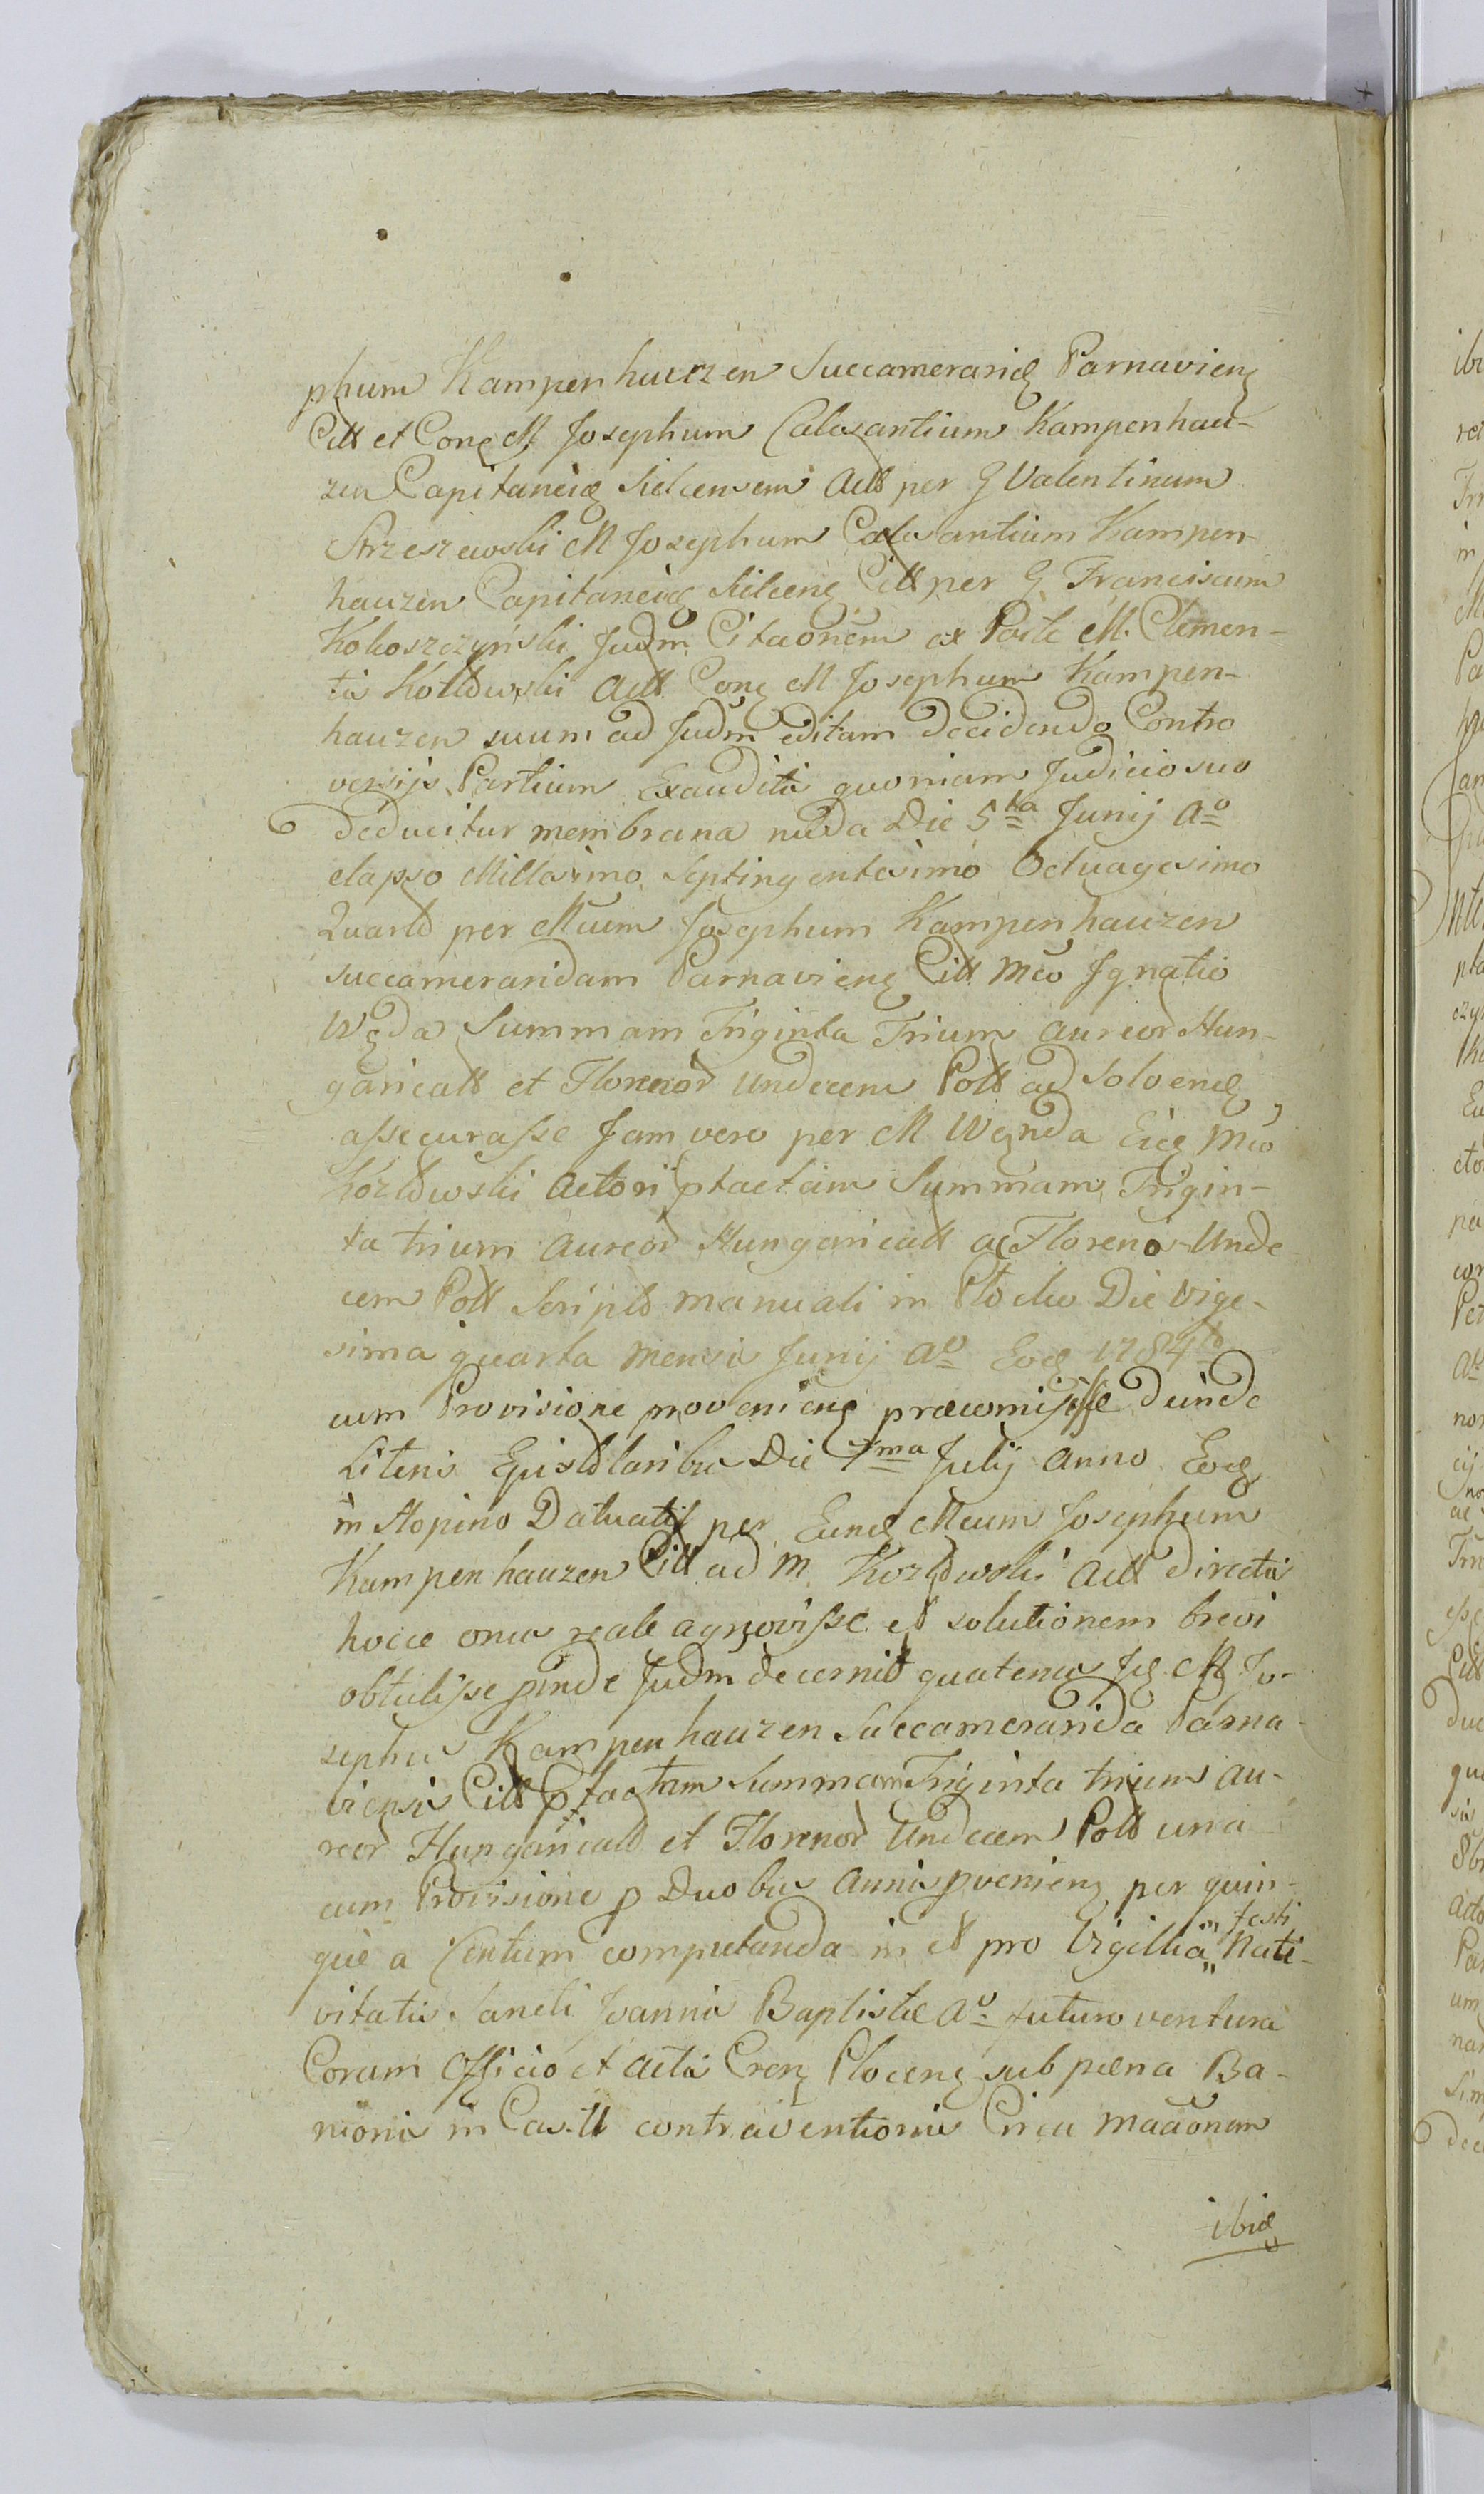 phum Kampenhauzen Succameraridę Parnavienę
Citt et Conę M Josephum Calasantium Kampenhau-
zen Capitaneidę Kielcensem Actt per G Valentinum
Strzeszewski M Josephum Calasantium Kampen-
hauzen Capitaneidę Kielcenę Citt per G Franciscum
Kokoszczynski Judm Citaonem ex Parte M. Clemen-
tis Kozłowski Actt Conę M Josephum Kampen-
hauzen suum ad Judm editam Decidendo Contro
versijs Partium Exauditis quoniam Judicio suo
deducitur membrana nuda Die 5ta Junij Ao
elapso Millesimo Septingentesimo Octuagesimo
Quarto per Mcum Josephum Kampenhauzen
succameraridam Parnavienę Citt Mco Ignatio
Węda Summam Triginta Trium aureor Hun-
garicall et Florenor Undecem Poll ad Solvendę
assecurasse Jam vero per M Węnda Eidę Mco
Kozłowski Actori ptactam Summam Trigin-
ta trium aureor Hungaricall ac Floreno Unde
cem Poll Scripto manuali in Płocko Die vige-
sima quarta mensis Junij Ao Eodę 1784to
cum Provisione provenienę præcomisisse deinde
Literis Epistolaribus Die 1ma Julij Anno Eodę
in Stopino Datuatis per Eundę Mcum Josephum
Kampenhauzen Citt ad M Kozłowski Actt directis
hocce onus reale agnovisse et solutionem brevi
obtulisse pinde Judm decernit quatenus Idę M Jo-
sephus Kampenhauzen Succamerarida Parna-
viensis Citt ptactam Summam Triginta trium au-
reor Hungaricall et Florenor Undecem Poll una
cum Provisione p Duobus Annis pvenienę per quin-
que a Centum computanda in et pro Vigillia „ Nati-
in festi
vitatis Sancti Joannis Baptistæ Ao futuro ventura
Coram Officio et Actis Crenę Plocenę sub pæna Ba-
nionis in Casu contraventionis Circa maaonem
ibidę